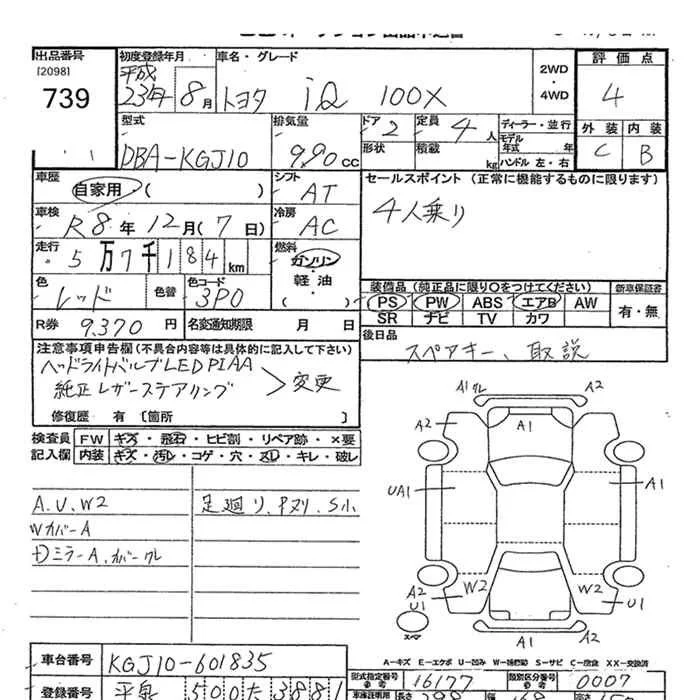 出品番号
[2098]
739
初度登録年月
平成
23年 8月
車名・グレード
トヨタ iQ 100X
2WD
・
4WD
評価点
4
外装 内装
C B
型式
DBA-KGJ10
排気量
990cc
ドア 2
形状
定員 4人
積載 kg
ディーラー・並行
モデル年式 年
ハンドル 左・右
車歴
自家用・( )
シフト
AT
セールスポイント (正常に機能するものに限ります)
4人乗り
車検
R8年12月(7日)
冷房
AC
走行
5万7千184km
燃料
ガソリン
・
軽油
・
( )
色
レッド
色替
色コード
3P0
装備品 (純正品に限り〇をつけてください)
PS PW ABS エアB AW
SR ナビ TV カワ
新車保証書
有・無
R券 9,370円
名変通知期限 月 日
後日品
スペアキー、取説
注意事項申告欄(不具合内容等は具体的に記入して下さい)
ヘッドライトバルブLED PIAA
純正レザーステアリング
変更
修復歴 有 [箇所 ]
検査員
記入欄
FW キズ・飛石・ヒビ割・リペア跡・×要
内装 キズ・汚レ・コゲ・穴・スレ・キレ・破レ
A.U.W2
WカバーA
DミラーA.カバークレ
足廻り.Pヌリ.S小
A1クレ A2
A2 A1
UA1 A1
W2 W2
A2
U1 U1
A1 A2
スペア
A…キズ E…エクボ U…凹み W…補修跡 S…サビ C…腐食 XX…交換済
車台番号
KGJ10-601835
型式指定番号
16177
類別区分番号
0007
登録番号
500 た 3881
長さ